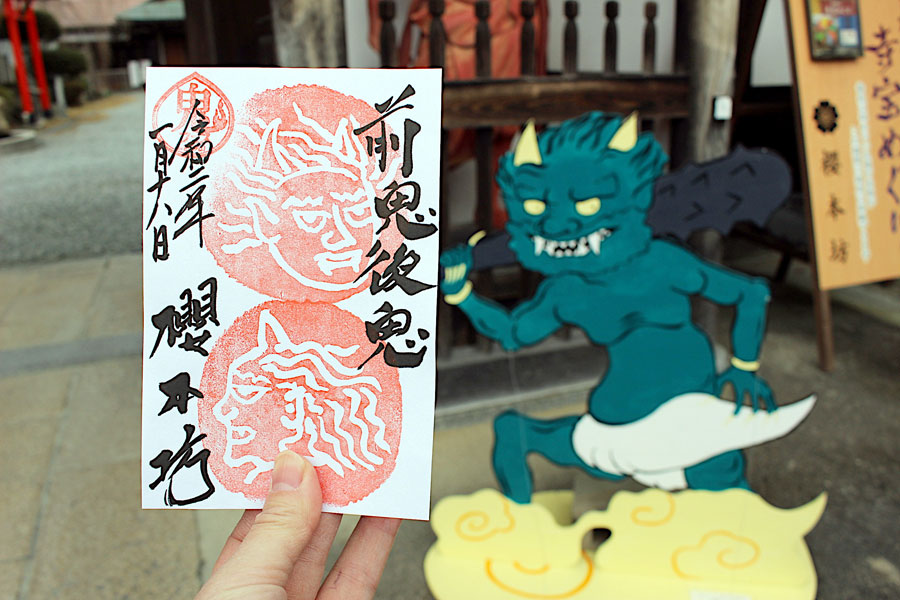 前鬼後鬼
鬼
令和二年
一月十八日
櫻本坊
寺宝めぐり
櫻本坊